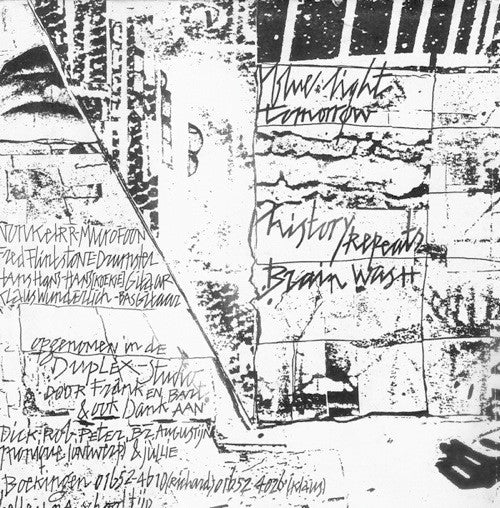 Blue: light
tomorrow
history
repeats
Brain Wash
Microfoon
Fred Flintstone Drumstel
Hans Hans Hans (Koekie) Gitaar
Klaus Wunderlich - Basgitaar
opgenomen in de
Duplex-Studio
Door Frank en Bart
& ook Dank AAN
Dick-Rob-Peter Br Augustijn
& Jullie
Boekingen 01652-4610 (Richard) 01652 4026 (Klaus)